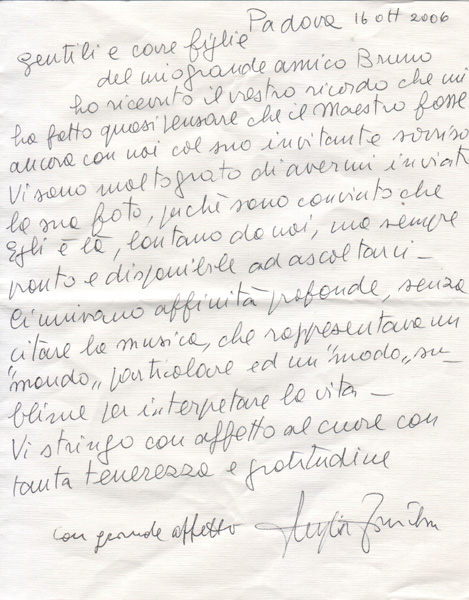 Padova 16 ott 2006
gentili e care figlie
del mio grande amico Bruno
ho ricevuto il vostro ricordo che mi
ha fatto quasi pensare che il Maestro fosse
ancora con noi col suo invitante sorriso
Vi sono molto grato di avermi inviato
la sua foto, perchè sono convinto che
Egli è là, lontano da noi, ma sempre
pronto e disponibile ad ascoltarci –
Ci univano affinità profonde, senza
citare la musica, che rappresentava un
"mondo" particolare ed un "modo" su–
blime per interpretare la vita –
Vi stringo con affetto al cuore con
tanta tenerezza e gratitudine
con grande affetto